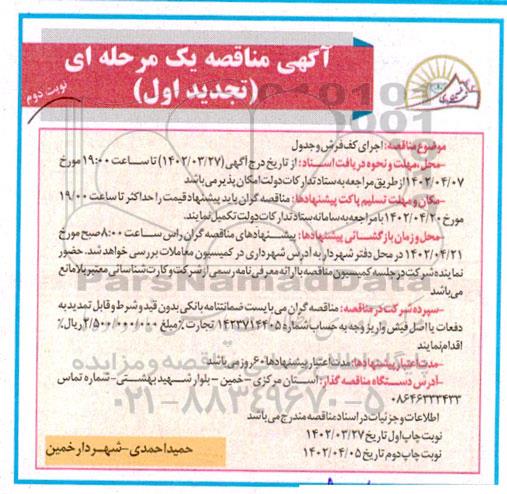 آگهی مناقصه یک مرحله ای
(تجدید اول)
نوبت دوم
موضوع مناقصه: اجرای کف فرش و جدول
-محل، مهلت و نحوه دریافت اسناد: از تاریخ درج آگهی (۱۴۰۲/۰۳/۲۷) تا ساعت ۱۹:۰۰ مورخ
۱۴۰۲/۰۴/۰۷ از طریق مراجعه به ستاد تدارکات دولت امکان پذیر می باشد
-مکان و مهلت تسلیم پاکت پیشنهادها: مناقصه گران باید پیشنهاد قیمت را حداکثر تا ساعت ۱۹/۰۰
مورخ ۱۴۰۲/۰۴/۲۰ با مراجعه به سامانه ستاد تدارکات دولت تکمیل نمایند.
-محل و زمان بازگشائی پیشنهادها: پیشنهادهای مناقصه گران راس ساعت ۸:۰۰ صبح مورخ
۱۴۰۲/۰۴/۲۱ در محل دفتر شهردار به آدرس شهرداری در کمیسیون معاملات بررسی خواهد شد. حضور
نماینده شرکت در جلسه کمیسیون مناقصه با ارائه معرفی نامه رسمی از شرکت و کارت شناسائی معتبر بلامانع
می باشد
-سپرده شرکت در مناقصه: مناقصه گران می بایست ضمانتنامه بانکی بدون قید و شرط و قابل تمدید به
دفعات یا اصل فیش واریز وجه به حساب شماره ۱۴۲۳۷۱۴۴۰۵ تجارت ٪ مبلغ ۲/۵۰۰/۰۰۰/۰۰۰ ریال٪
اقدام نمایند
-مدت اعتبار پیشنهادها: مدت اعتبار پیشنهادها ۶۰ روز می باشد
-آدرس دستگاه مناقصه گذار: استان مرکزی - خمین - بلوار شهید بهشتی - شماره تماس
۰۸۶۴۶۳۳۳۴۳۳
اطلاعات و جزئیات در اسناد مناقصه مندرج می باشد
نوبت چاپ اول تاریخ ۱۴۰۲/۰۳/۲۷
نوبت چاپ دوم تاریخ ۱۴۰۲/۰۴/۰۵
حمید احمدی - شهردار خمین
ParsNamadData
پایگاه اطلاع رسانی مناقصه و مزایده
۰۲۱-۸۸۳۴۹۶۷۰-۵